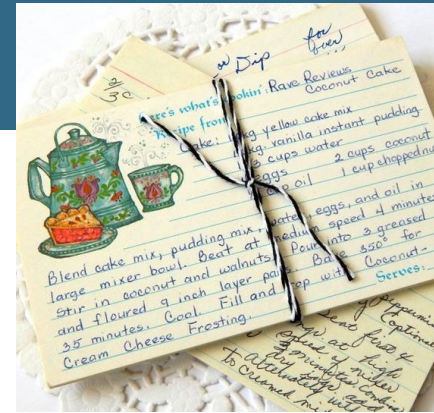 or Dip for
over
2/3 c
ere's what's cookin': Rave Reviews
Coconut Cake
Recipe from
Cake: 1 pkg yellow cake mix
pkg. vanilla instant pudding
/3 cups water
eggs 2 cups coconut
cup oil 1 cup chopped nu
Blend cake mix, pudding mix, water, eggs, and oil in
large mixer bowl. Beat at medium speed 4 minutes
Stir in coconut and walnuts. Pour into 3 greased
and floured 9 inch layer pans. Bake 350° for
35 minutes. Cool. Fill and top with Coconut-
Cream Cheese Frosting.
Serves:
optional
Beat first 4
at high
speed of mixer
3 minutes
To creamed mix